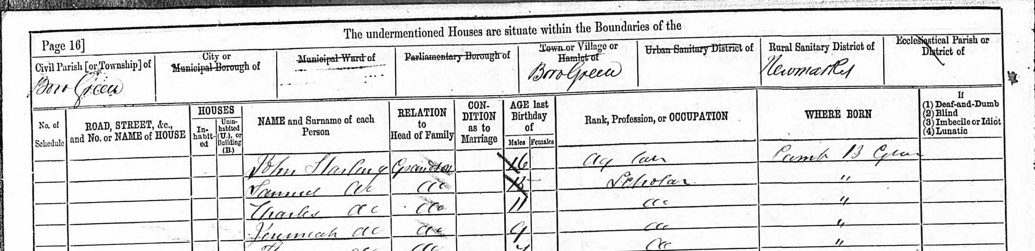 The undermentioned Houses are situate within the Boundaries of the
Page 16]
Civil Parish [or Township] of
Boro Green
City or Municipal Borough of
Municipal Ward of
Parliamentary Borough of
Town or Village or Hamlet of
Boro Green
Urban Sanitary District of
Rural Sanitary District of
Newmarket
Ecclesiastical Parish or District of
No. of Schedule
ROAD, STREET, &c., and No. or NAME of HOUSE
HOUSES
In-habit-ed
Unin-habited (U.), or Building (B.)
NAME and Surname of each Person
RELATION to Head of Family
CON-DITION as to Marriage
AGE last Birthday of
Males
Females
Rank, Profession, or OCCUPATION
WHERE BORN
If
(1) Deaf-and-Dumb
(2) Blind
(3) Imbecile or Idiot
(4) Lunatic
John Grandson 16 Ag Lab Camb B Green
Samuel do do 13 Scholar "
Charles do do 11 do "
Jeremiah do do 9 do "
do do